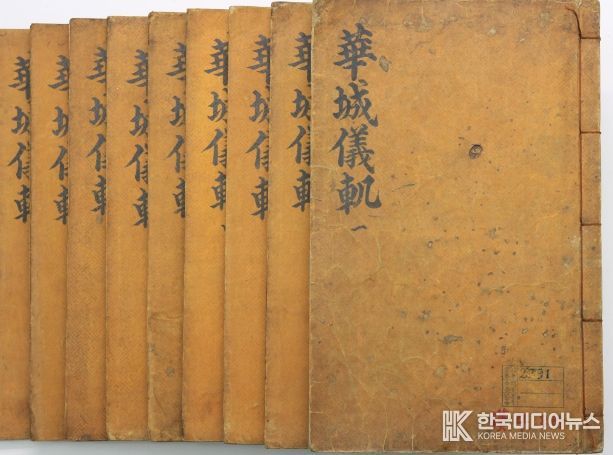 華城儀軌 一
華城儀軌
華城儀軌
華城儀軌
華城儀軌
華城儀軌
華城儀軌
華城儀軌
華城儀軌
HK 한국미디어뉴스
KOREA MEDIA NEWS